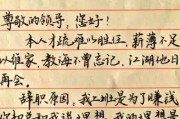 尊敬的领导，您好！
本人才疏难以胜任，薪薄不足
以维家，教诲不曾忘记，江湖他日
再会。
辞职原因，我上班是为了赚钱